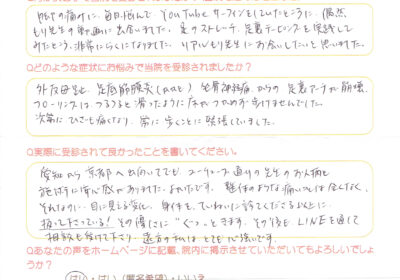 時の痛みに、毎日悩んで YouTube サーフィンをしていたところに、偶然
もり先生の動画に出会いました。裏のストレッチ、足裏テーピングを実践して
みたところ、非常にらくになりました。リアルもり先生にお会いしたいと思いました。
Q.どのような症状にお悩みで当院を受診されましたか？
外反母趾、足底筋膜炎 坐骨神経痛、からの 足裏アーチが崩壊
フローリングは、つるつると滑ったように床がつかめず歩けませんでした。
次第にひざも痛くなり、常に歩くことに緊張していました。
Q.実際に受診されて良かったことを書いてください。
愛知から京都へ出向いてでも、ユーチューブ通りの先生のお人柄と
施術に安心感がありました。整体のような痛いのは全くなく、
それなのに、目に見える変化、身体を、ていねいに診てくださる以上に、
扱って下さっている！その優しさに"ぐっ"ときます。その後も LINEを通して
相談も受けて下さり、遠方の私は、とても心強いです。
Q.あなたの声をホームページに記載、院内に掲示させていただいてもよろしいでしょうか？
はい・はい（匿名希望）・いいえ